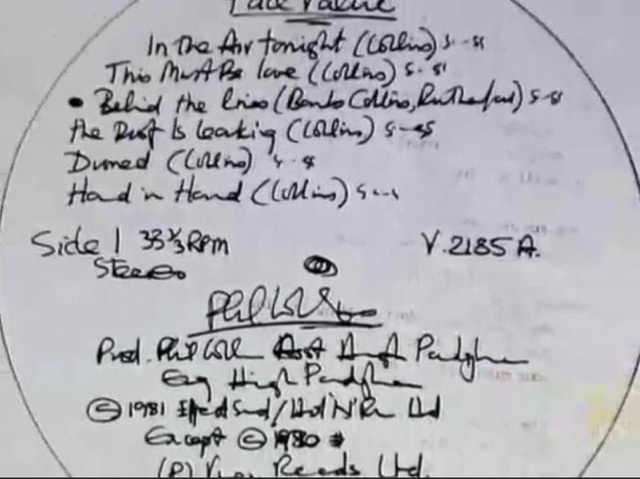 Face Value
In the Air tonight (Collins) 5-51
This Must Be love (Collins) 5-51
• Behind the lines (Banks Collins, Rutherford) 5-51
the Roof Is leaking (Collins)
Droned (Collins)
Hand in Hand (Collins)
Side 1 33 1/3 RPM V.2185 A.
Stereo
Phil Collins
Prod. Phil Collins Asst Hugh Padgham
Eng Hugh Padgham
© 1981 / Ltd
Except © 1980 *
(P) Records Ltd.